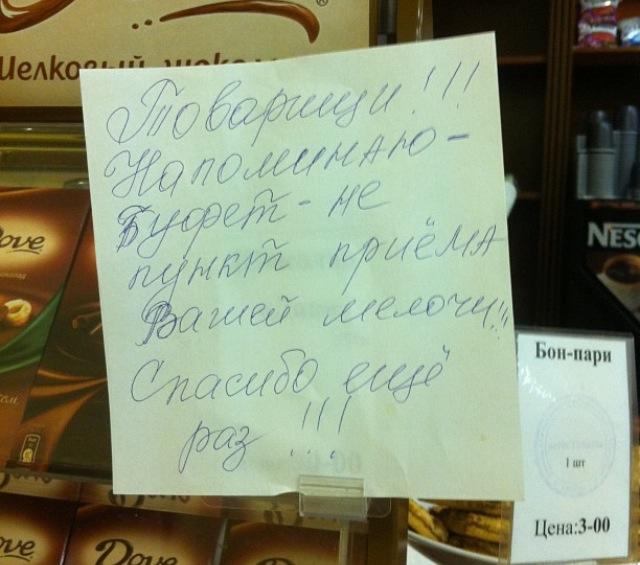 Шелковый шоколад
Товарищи!!!
Напоминаю-
Буфет - не
пункт приёма
Вашей мелочи!!
Спасибо ещё
раз!!!
Dove
NES
Бон-пари
1 шт
Цена:3-00
Dove
Dove
Dove